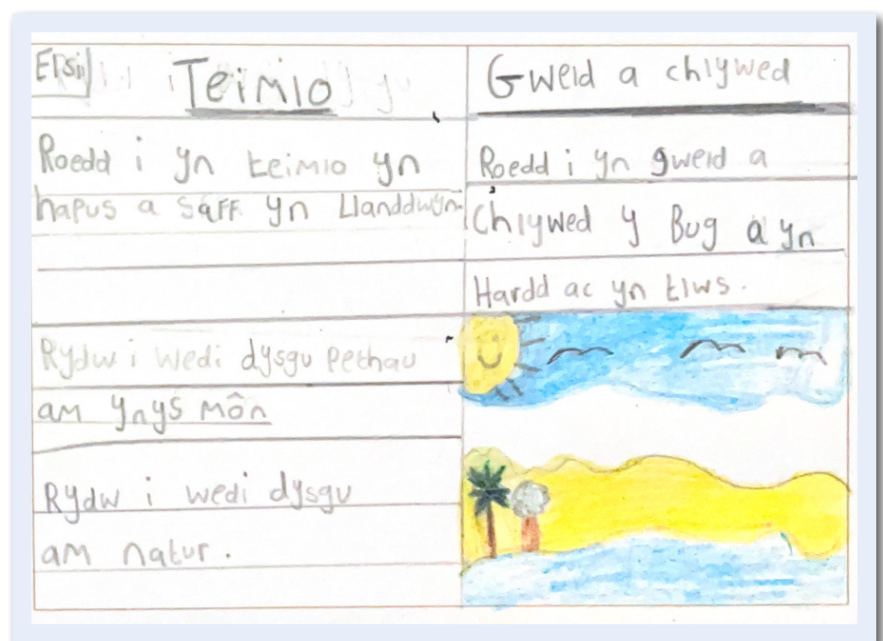 Elsi
Teimlo
Roedd i yn teimlo yn
hapus a saff yn Llanddwyn.
Rydw i wedi dysgu pethau
am ynys môn
Rydw i wedi dysgu
am natur.
Gweld a chlywed
Roedd i yn gweld a
Chlywed y Bug a yn
Hardd ac yn tlws.